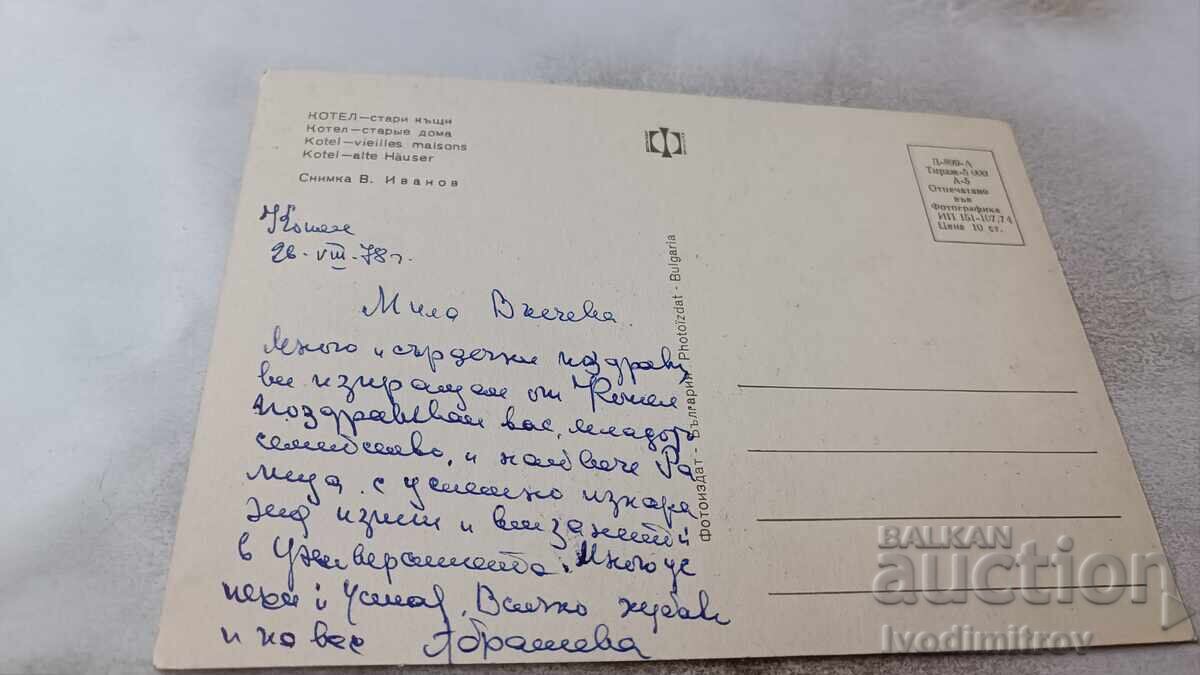 КОТЕЛ—стари къщи
Котел—старые дома
Kotel—vieilles maisons
Kotel—alte Häuser
Снимка В. Иванов
Д-899-А
Тираж-5 000
А-5
Отпечатано
във
Фотографика
ИП 151-107/74
Цена 10 ст.
Фотоиздат - България - Photoïzdat - Bulgaria
Котел
26. VIII. 78 г.
Мила
Много и сърдечни поздрави
ви изпращам от Котел
Поздравявам вас, младото
семейство, и най вече Ра
мида с успешно изкара
изпити и
в Университета. Много ус
пехи и успех. Всичко хубаво
и на вас Абрашева
BALKAN
auction
Ivodimitrov